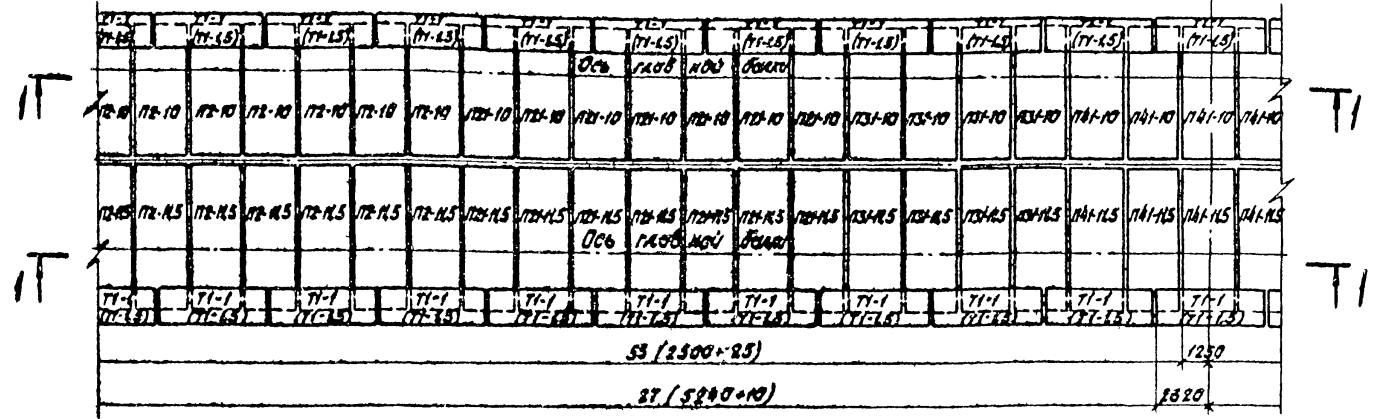 Т1-1 Т1-1 Т1-1 Т1-1 Т1-1 Т1-1 Т1-1 Т1-1 Т1-1 Т1-1 Т1-1
(Т1-1,5) (Т1-1,5) (Т1-1,5) (Т1-1,5) (Т1-1,5) (Т1-1,5) (Т1-1,5) (Т1-1,5) (Т1-1,5) (Т1-1,5) (Т1-1,5)
Ось глав ной балки
1 П2-10 П2-10 П2-10 П2-10 П2-10 П2-10 П2-10 П21-10 П21-10 П21-10 П21-10 П21-10 П21-10 П21-10 П31-10 П31-10 П31-10 П31-10 П41-10 П41-10 П41-10 П41-10 1
П2-11,5 П2-11,5 П2-11,5 П2-11,5 П2-11,5 П2-11,5 П2-11,5 П21-11,5 П21-11,5 П21-11,5 П21-11,5 П21-11,5 П21-11,5 П21-11,5 П31-11,5 П31-11,5 П31-11,5 П31-11,5 П41-11,5 П41-11,5 П41-11,5 П41-11,5
Ось глав ной балки
1 1
Т1-1 Т1-1 Т1-1 Т1-1 Т1-1 Т1-1 Т1-1 Т1-1 Т1-1 Т1-1 Т1-1
(Т1-1,5) (Т1-1,5) (Т1-1,5) (Т1-1,5) (Т1-1,5) (Т1-1,5) (Т1-1,5) (Т1-1,5) (Т1-1,5) (Т1-1,5) (Т1-1,5)
53 (2500+25) 1250
27 (5240+10) 2620